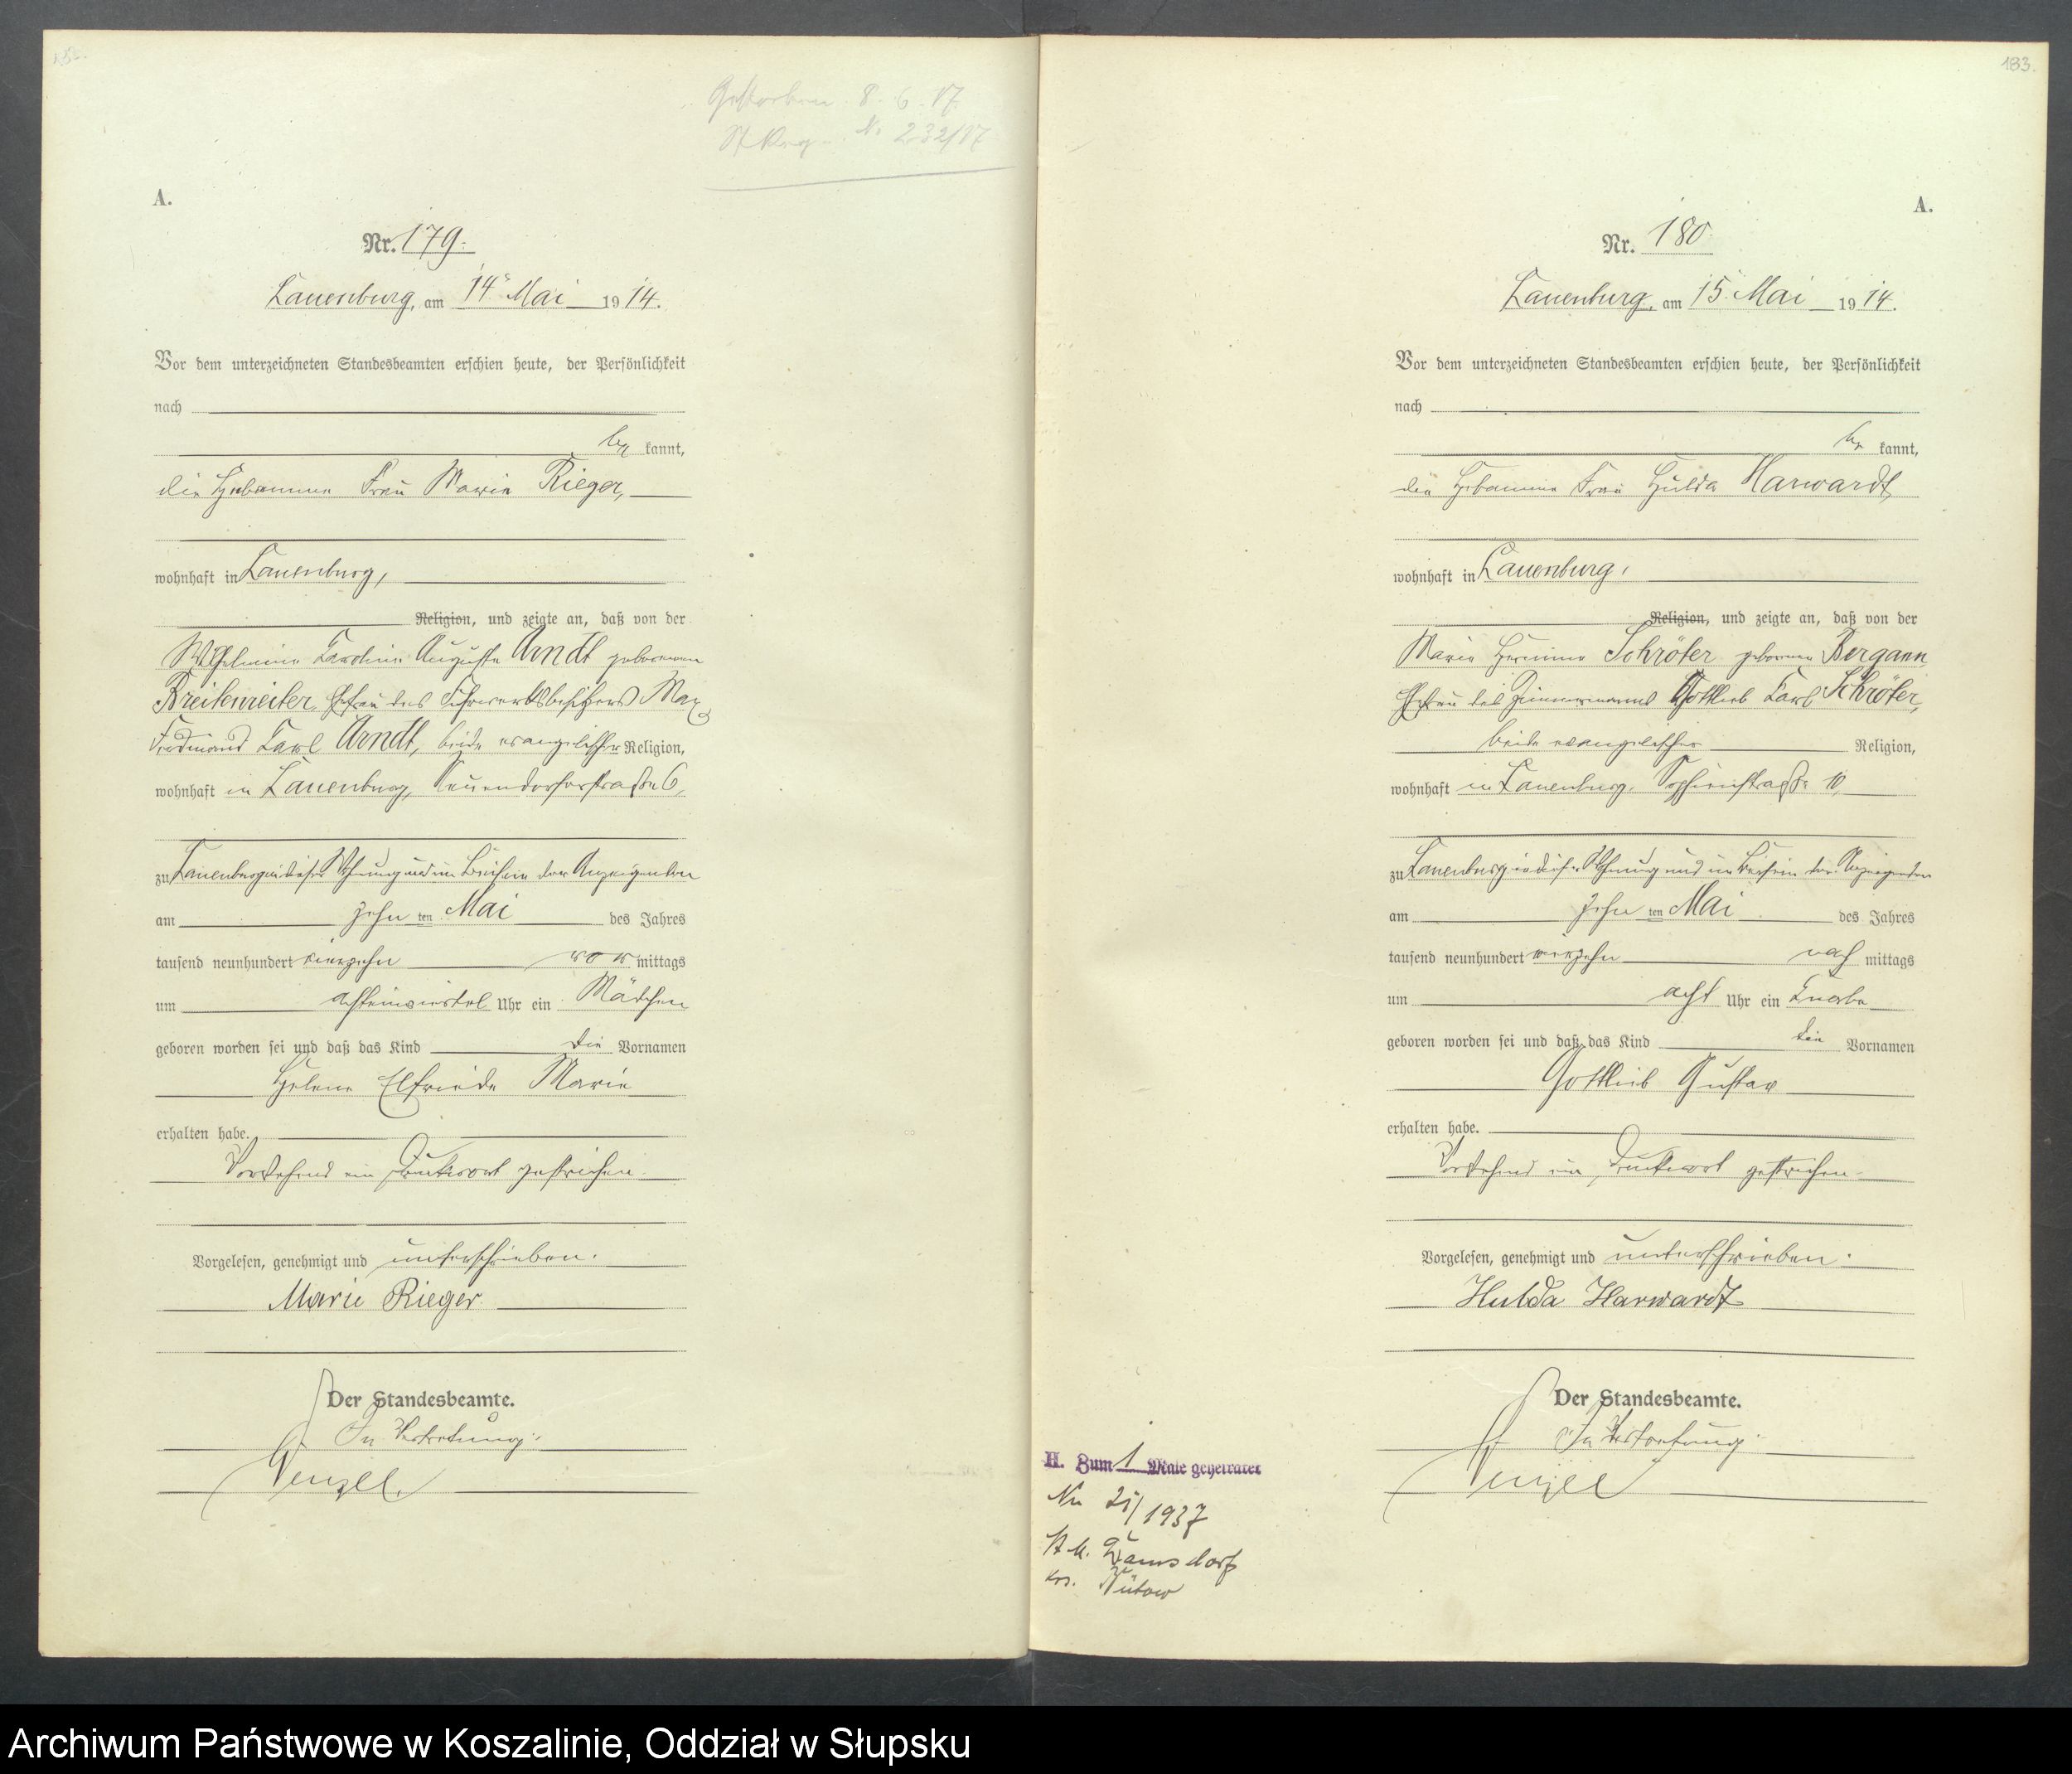 Gestorben 8. 6. 17.
St. Reg. No 232/17
A.
Nr. 179.
Lauenburg, am 14. Mai 1914.
Vor dem unterzeichneten Standesbeamten erschien heute, der Persönlichkeit
nach
be kannt,
die Hebamme Frau Marie Rieger,
wohnhaft in Lauenburg,
Religion, und zeigte an, daß von der
Wilhelmine Karoline Auguste Arndt geborenen
Breitenreiter, Ehefrau des Fuhrwerksbesitzers Max
Ferdinand Karl Arndt, beide evangelischer Religion,
wohnhaft in Lauenburg, Neuendorferstraße 6,
zu Lauenburg in dieser Wohnung und im Beisein der Anzeigenden
am zehn ten Mai des Jahres
tausend neunhundert vierzehn vor mittags
um achteinviertel Uhr ein Mädchen
geboren worden sei und daß das Kind die Vornamen
Helene Elfriede Marie
erhalten habe.
Vorstehend ein Druckwort gestrichen.
Vorgelesen, genehmigt und unterschrieben.
Marie Rieger.
Der Standesbeamte.
In Vertretung.
Wenzel.
183.
A.
Nr. 180
Lauenburg, am 15. Mai 1914.
Vor dem unterzeichneten Standesbeamten erschien heute, der Persönlichkeit
nach
be kannt,
die Hebamme Frau Hulda Harwardt,
wohnhaft in Lauenburg,
Religion, und zeigte an, daß von der
Marie Hermine Schröter geborenen Bergann,
Ehefrau des Zimmermanns Gottlieb Karl Schröter,
beide evangelischer Religion,
wohnhaft in Lauenburg, Sophienstraße 10,
zu Lauenburg in dieser Wohnung und im Beisein der Anzeigenden
am zehn ten Mai des Jahres
tausend neunhundert vierzehn nach mittags
um acht Uhr ein Knabe
geboren worden sei und daß das Kind die Vornamen
Gottlieb Gustav
erhalten habe.
Vorstehend ein Druckwort gestrichen.
Vorgelesen, genehmigt und unterschrieben.
Hulda Harwardt
Der Standesbeamte.
In Vertretung.
Wenzel
H. Zum 1 Male geheiratet
1937
Krs. Bütow
Archiwum Państwowe w Koszalinie, Oddział w Słupsku